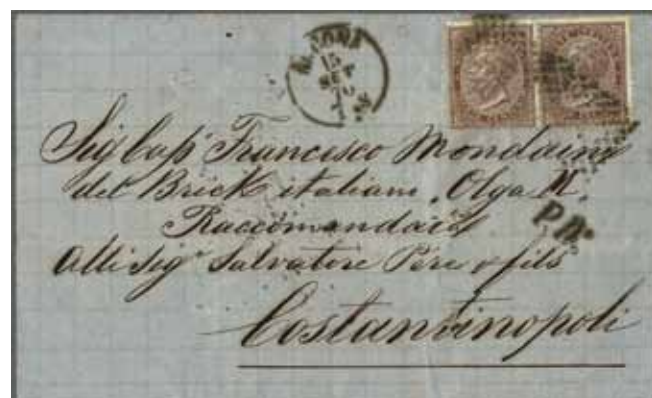 ANCONA
15
SET
70
Sig Cap Francesco Mondaini
del Brick italiano "Olga M."
Raccomandato
P.D.
Alli Sigri Salvatore Père & fils
Costantinopoli